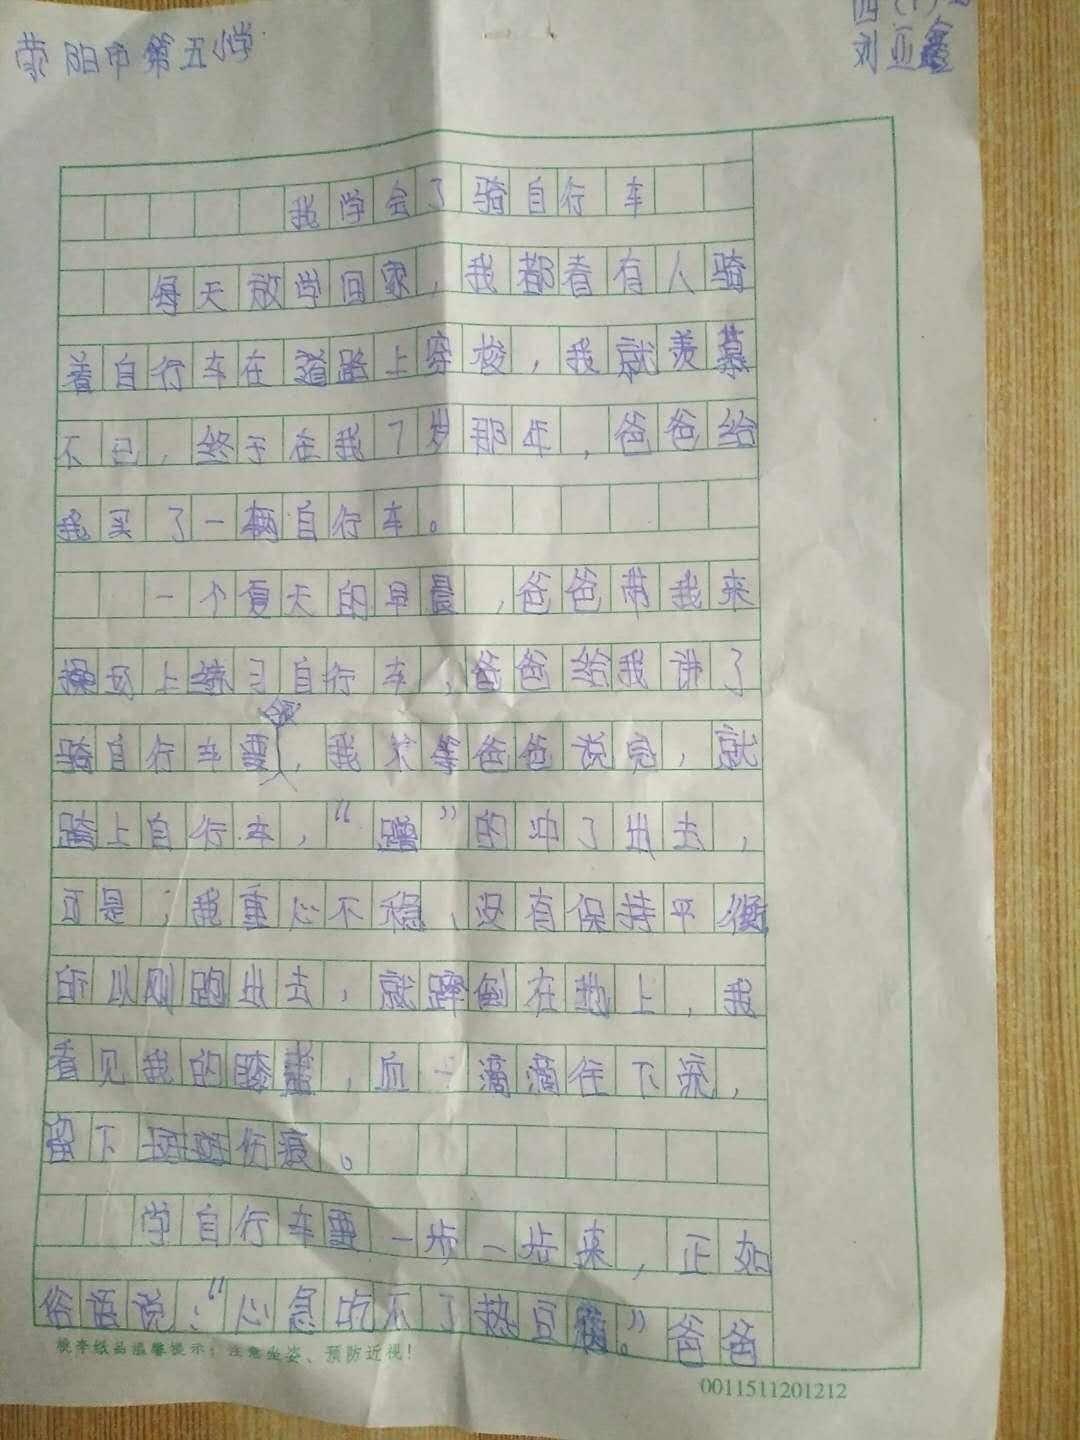 荥阳市第五小学
四(1)
刘亚鑫
我学会了骑自行车
每天放学回家，我都看有人骑
着自行车在道路上穿梭，我就羡慕
不已，终于在我7岁那年，爸爸给
我买了一辆自行车。
一个夏天的早晨，爸爸带我来
操场上练习自行车，爸爸给我讲了
骑自行车要领，我不等爸爸说完，就
骑上自行车，“蹭”的冲了出去，
可是，我重心不稳、没有保持平衡
所以刚跑出去，就蹿倒在地上，我
看见我的膝盖，血一滴滴往下流，
留下斑斑伤痕。
学自行车要一步一步来，正如
俗语说：“心急吃不了热豆腐。”爸爸
桃李纸品温馨提示：注意坐姿、预防近视！
0011511201212